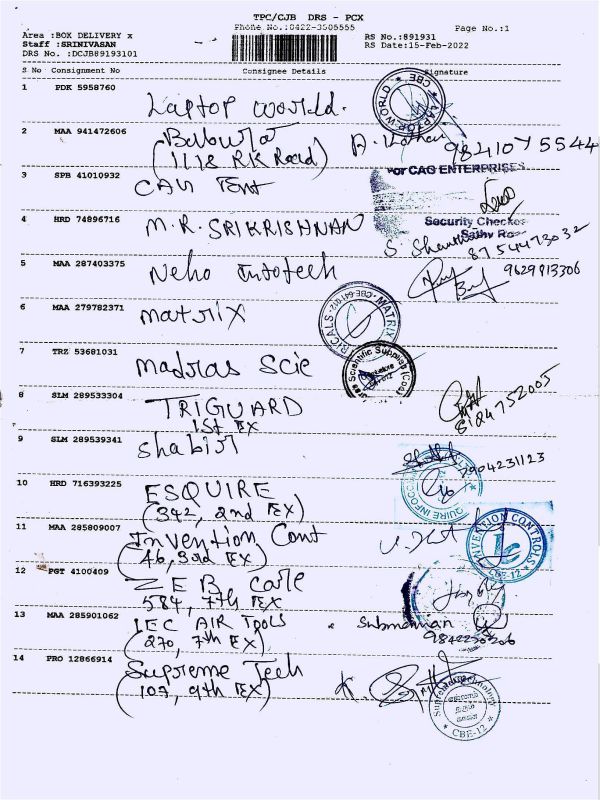 TPC/CJB DRS - PCX
Phone No.:0422-3505555
Page No.:1
Area :BOX DELIVERY x
RS No.:891931
Staff :SRINIVASAN
RS Date:15-Feb-2022
DRS No. :DCJB89193101
S No Consignment No Consignee Details Signature
1 PDK 5958760
Laptop world.
LAPTOP WORLD CBE
2 MAA 941472606
(1118 RK Road)
3 SPB 41010932
For CAG ENTERPRISES
Security Checked
4 HRD 74896716 M.R. SRIKRISHNAN
8754473032
5 MAA 287403375 Neho Infotech
9629813306
6 MAA 279782371 matrix
MATRIX
7 TRZ 53681031 madras Scie
Scientific Supplies
8 SLM 289533304 TRIGUARD
1st Ex
8124752005
9 SLM 289539341 Shabir
7904231123
10 HRD 716393225 ESQUIRE
(342, 2nd Ex)
11 MAA 285809007 Invention Cont
(46, 3rd Ex)
INVENTION CONTROLS
CBE-12
12 PGT 4100409 ZEB care
584, 7th Ex
13 MAA 285901062 IEC AIR TOOLS
(270, 7th Ex)
14 PRO 12866914 Supreme Tech
(107, 9th Ex)
CBE-12